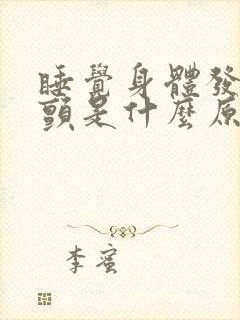 睡覺身體發
頭是什麼原
李蜜